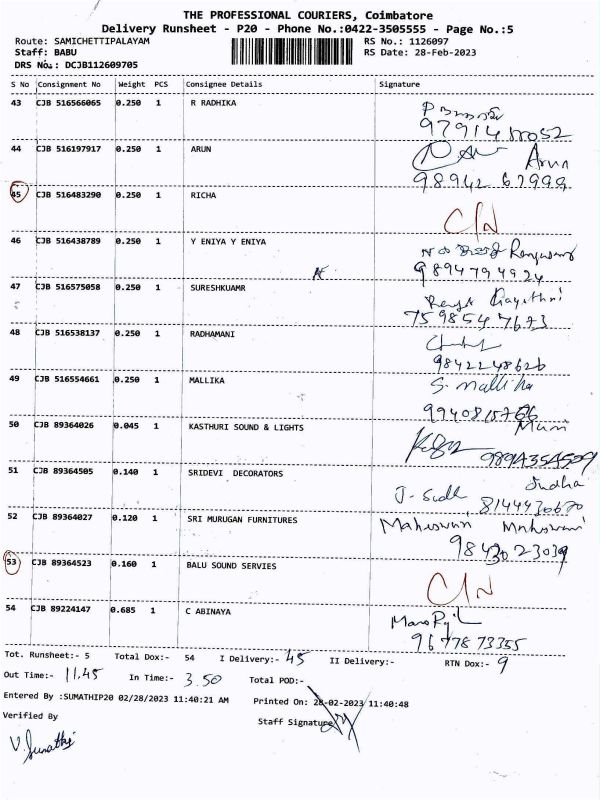 THE PROFESSIONAL COURIERS, Coimbatore
Delivery Runsheet - P20 - Phone No.:0422-3505555 - Page No.:5
Route: SAMICHETTIPALAYAM RS No.: 1126097
Staff: BABU RS Date: 28-Feb-2023
DRS No.: DCJB112609705
S No Consignment No Weight PCS Consignee Details Signature
43 CJB 516566065 0.250 1 R RADHIKA
44 CJB 516197917 0.250 1 ARUN Arun
98942 67999
45 CJB 516483290 0.250 1 RICHA
C/N
46 CJB 516438789 0.250 1 Y ENIYA Y ENIYA
9894794924
47 CJB 516575058 0.250 1 SURESHKUAMR
7598547673
48 CJB 516538137 0.250 1 RADHAMANI
9842248626
49 CJB 516554661 0.250 1 MALLIKA S. mallika
9940815766
50 CJB 89364026 0.045 1 KASTHURI SOUND & LIGHTS Muni
51 CJB 89364505 0.140 1 SRIDEVI DECORATORS Sudha
8144430670
52 CJB 89364027 0.120 1 SRI MURUGAN FURNITURES Maheswari Maheswari
9843023039
53 CJB 89364523 0.160 1 BALU SOUND SERVIES
C/N
54 CJB 89224147 0.685 1 C ABINAYA
9677873355
Tot. Runsheet:- 5 Total Dox:- 54 I Delivery:- 45 II Delivery:- RTN Dox:- 9
Out Time:- 11.45 In Time:- 3.50 Total POD:-
Entered By :SUMATHIP20 02/28/2023 11:40:21 AM Printed On: 28-02-2023 11:40:48
Verified By Staff Signature
V. Sumathi